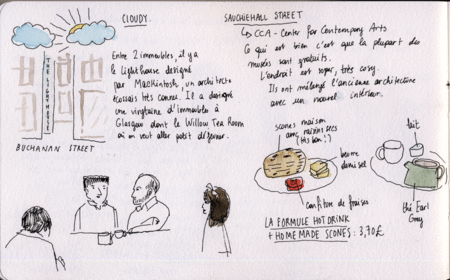 CLOUDY.
THE LIGHTHOUSE
BUCHANAN STREET
Entre 2 immeubles, il y a
le Lighthouse designé
par MacKintosh, un architecte
écossais très connu. Il a designé
une vingtaine d'immeubles à
Glasgow dont le Willow Tea Room
où on veut aller petit déjeuner.
SAUCHIEHALL STREET
↳ CCA - Center for Contempory Arts
Ce qui est bien c'est que la plupart des
musées sont gratuits.
L'endroit est super, très cosy.
Ils ont mélangé l'ancienne architecture
avec un nouvel intérieur.
scones maison
avec raisins secs
(très bon!)
beurre
demi sel
confiture de fraises
lait
thé Earl
Grey
LA FORMULE HOT DRINK
+ HOMEMADE SCONES : 3,70£